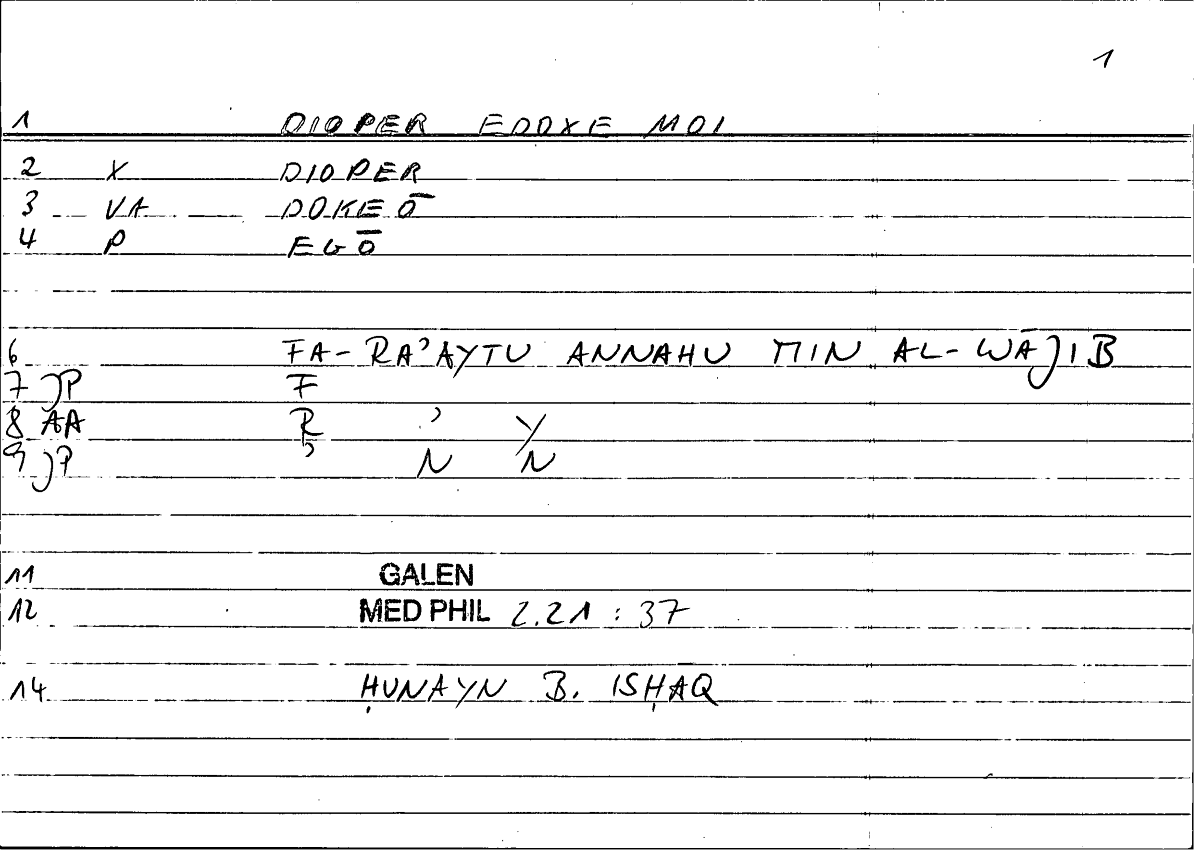 1
1 DIOPER EDOXE MOI
2 X DIOPER
3 VA DOKEŌ
4 P EGŌ
6 FA-RAʾAYTU ANNAHU MIN AL-WĀJIB
7 JP F
8 AA R ʾ Y
9 JP ʾ N N
11 GALEN
12 MED PHIL 2.21 : 37
14 ḤUNAYN B. ISḤĀQ